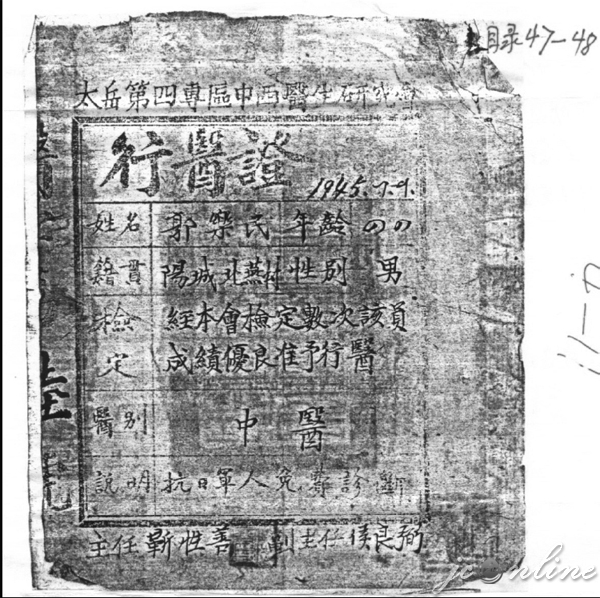 目录47-48
太岳第四專區中西醫生研究會
行醫證
1945.7.1.
姓名 郭榮民 年齡
籍貫 陽城北燕村 性別 男
檢定 經本會檢定數次該員
成績優良准予行醫
醫別 中醫
説明 抗日軍人免費診斷
主任靳性善 副主任侯良弼
jconline